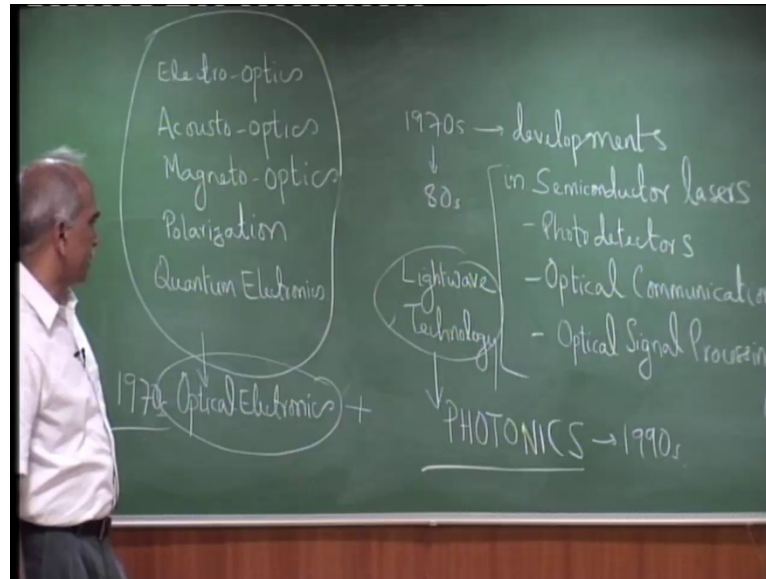 Electro-optics
Acousto-optics
Magneto-optics
Polarization
Quantum Electronics
1970s Optical Electronics +
1970s → developments
↓
80s
in Semiconductor lasers
- Photodetectors
- Optical Communication
- Optical Signal Processin
Lightwave
Technology
PHOTONICS → 1990s